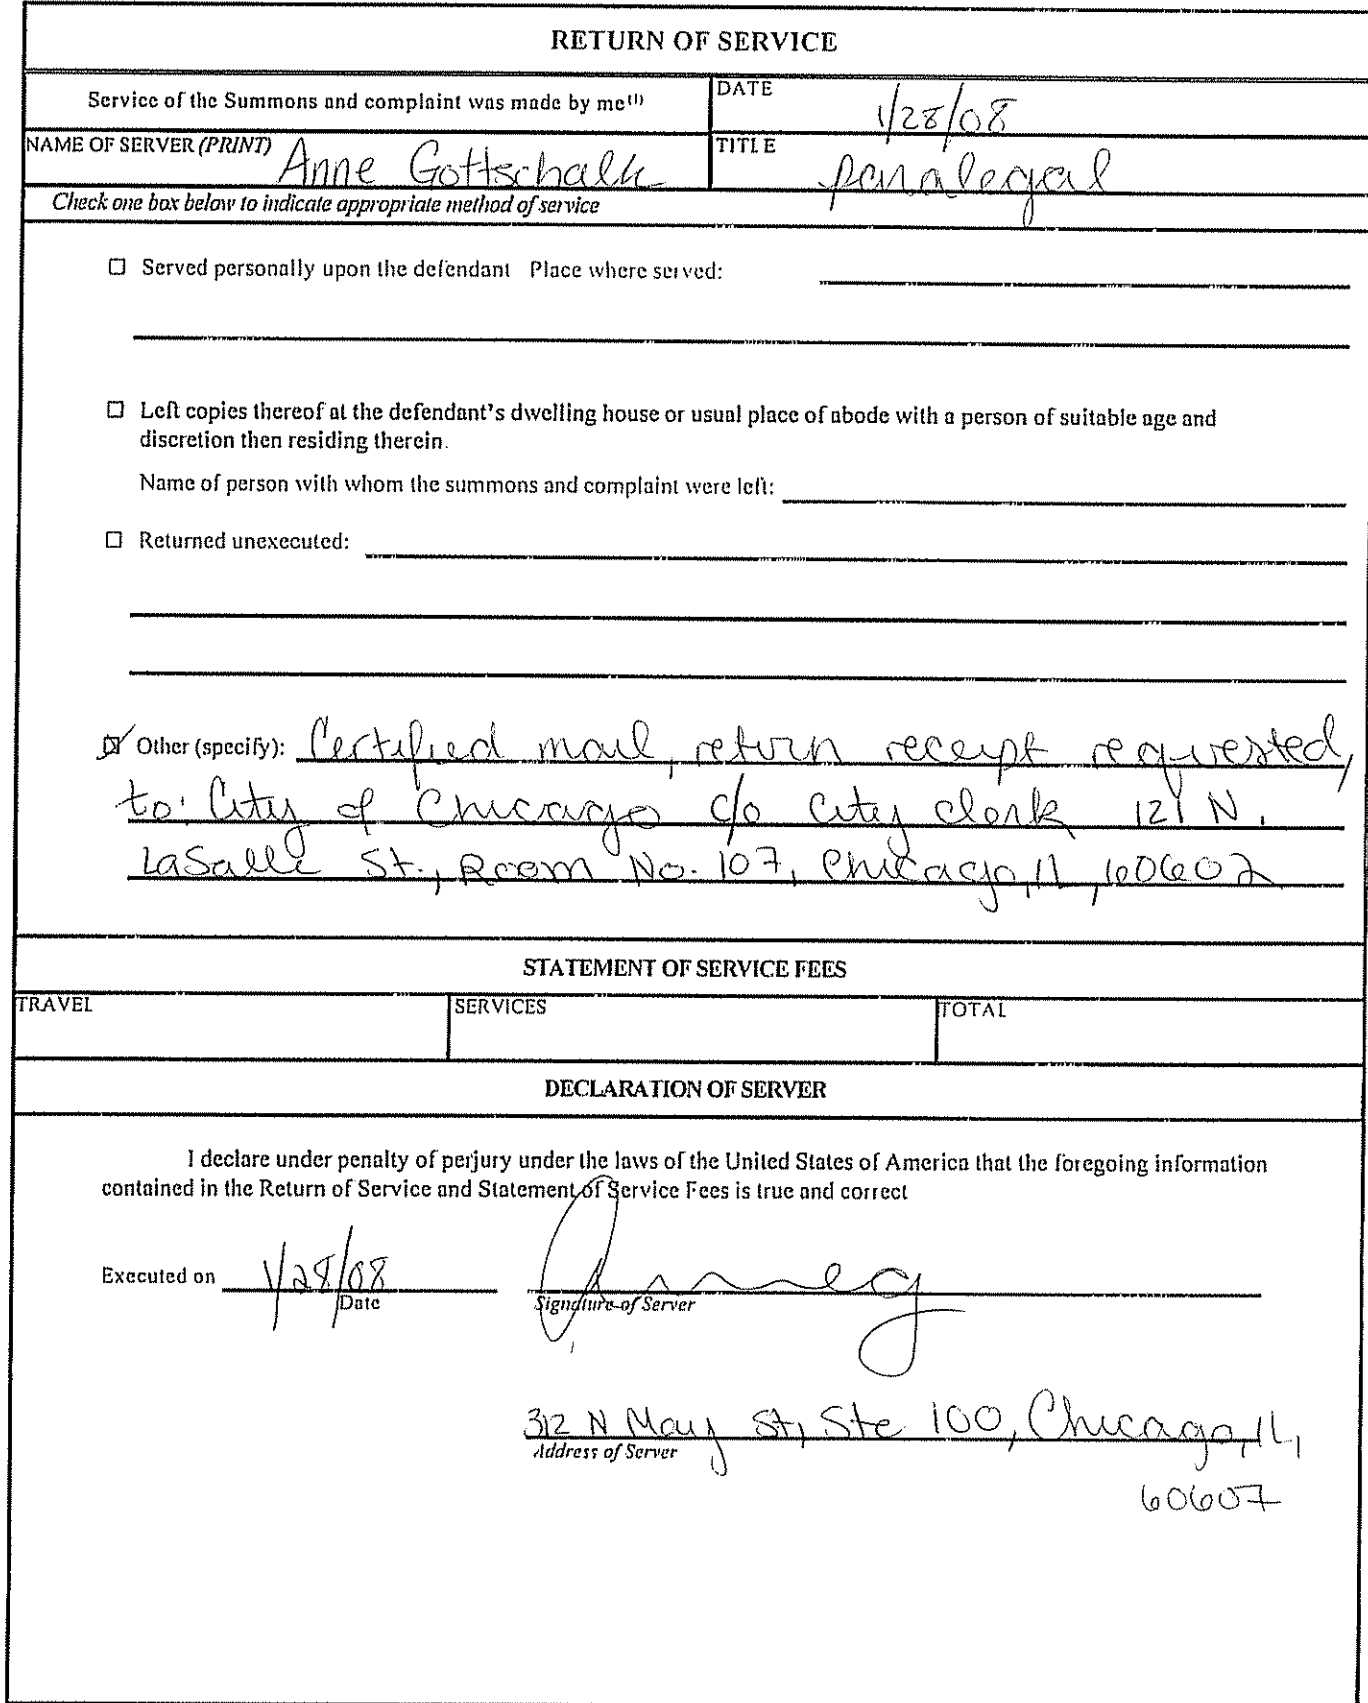 RETURN OF SERVICE
Service of the Summons and complaint was made by me(1)
DATE
1/28/08
NAME OF SERVER (PRINT) Anne Gottschalk
TITLE
paralegal
Check one box below to indicate appropriate method of service
☐ Served personally upon the defendant Place where served:
☐ Left copies thereof at the defendant's dwelling house or usual place of abode with a person of suitable age and
discretion then residing therein.
Name of person with whom the summons and complaint were left:
☐ Returned unexecuted:
☑ Other (specify): Certified mail, return receipt requested,
to: City of Chicago c/o City Clerk 121 N.
LaSalle St., Room No. 107, Chicago, IL, 60602
STATEMENT OF SERVICE FEES
TRAVEL
SERVICES
TOTAL
DECLARATION OF SERVER
I declare under penalty of perjury under the laws of the United States of America that the foregoing information
contained in the Return of Service and Statement of Service Fees is true and correct
Executed on 1/28/08
Date
Signature of Server
312 N May St, Ste 100, Chicago, IL,
Address of Server
60607